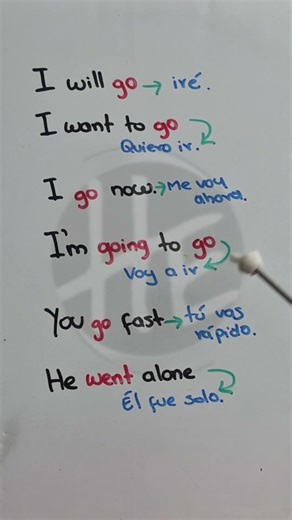 I will go → iré.
I want to go
Quiero ir.
I go now. → Me voy
ahora.
I'm going to go
Voy a ir
You go fast → tú vas
rápido.
He went alone
Él fue solo.